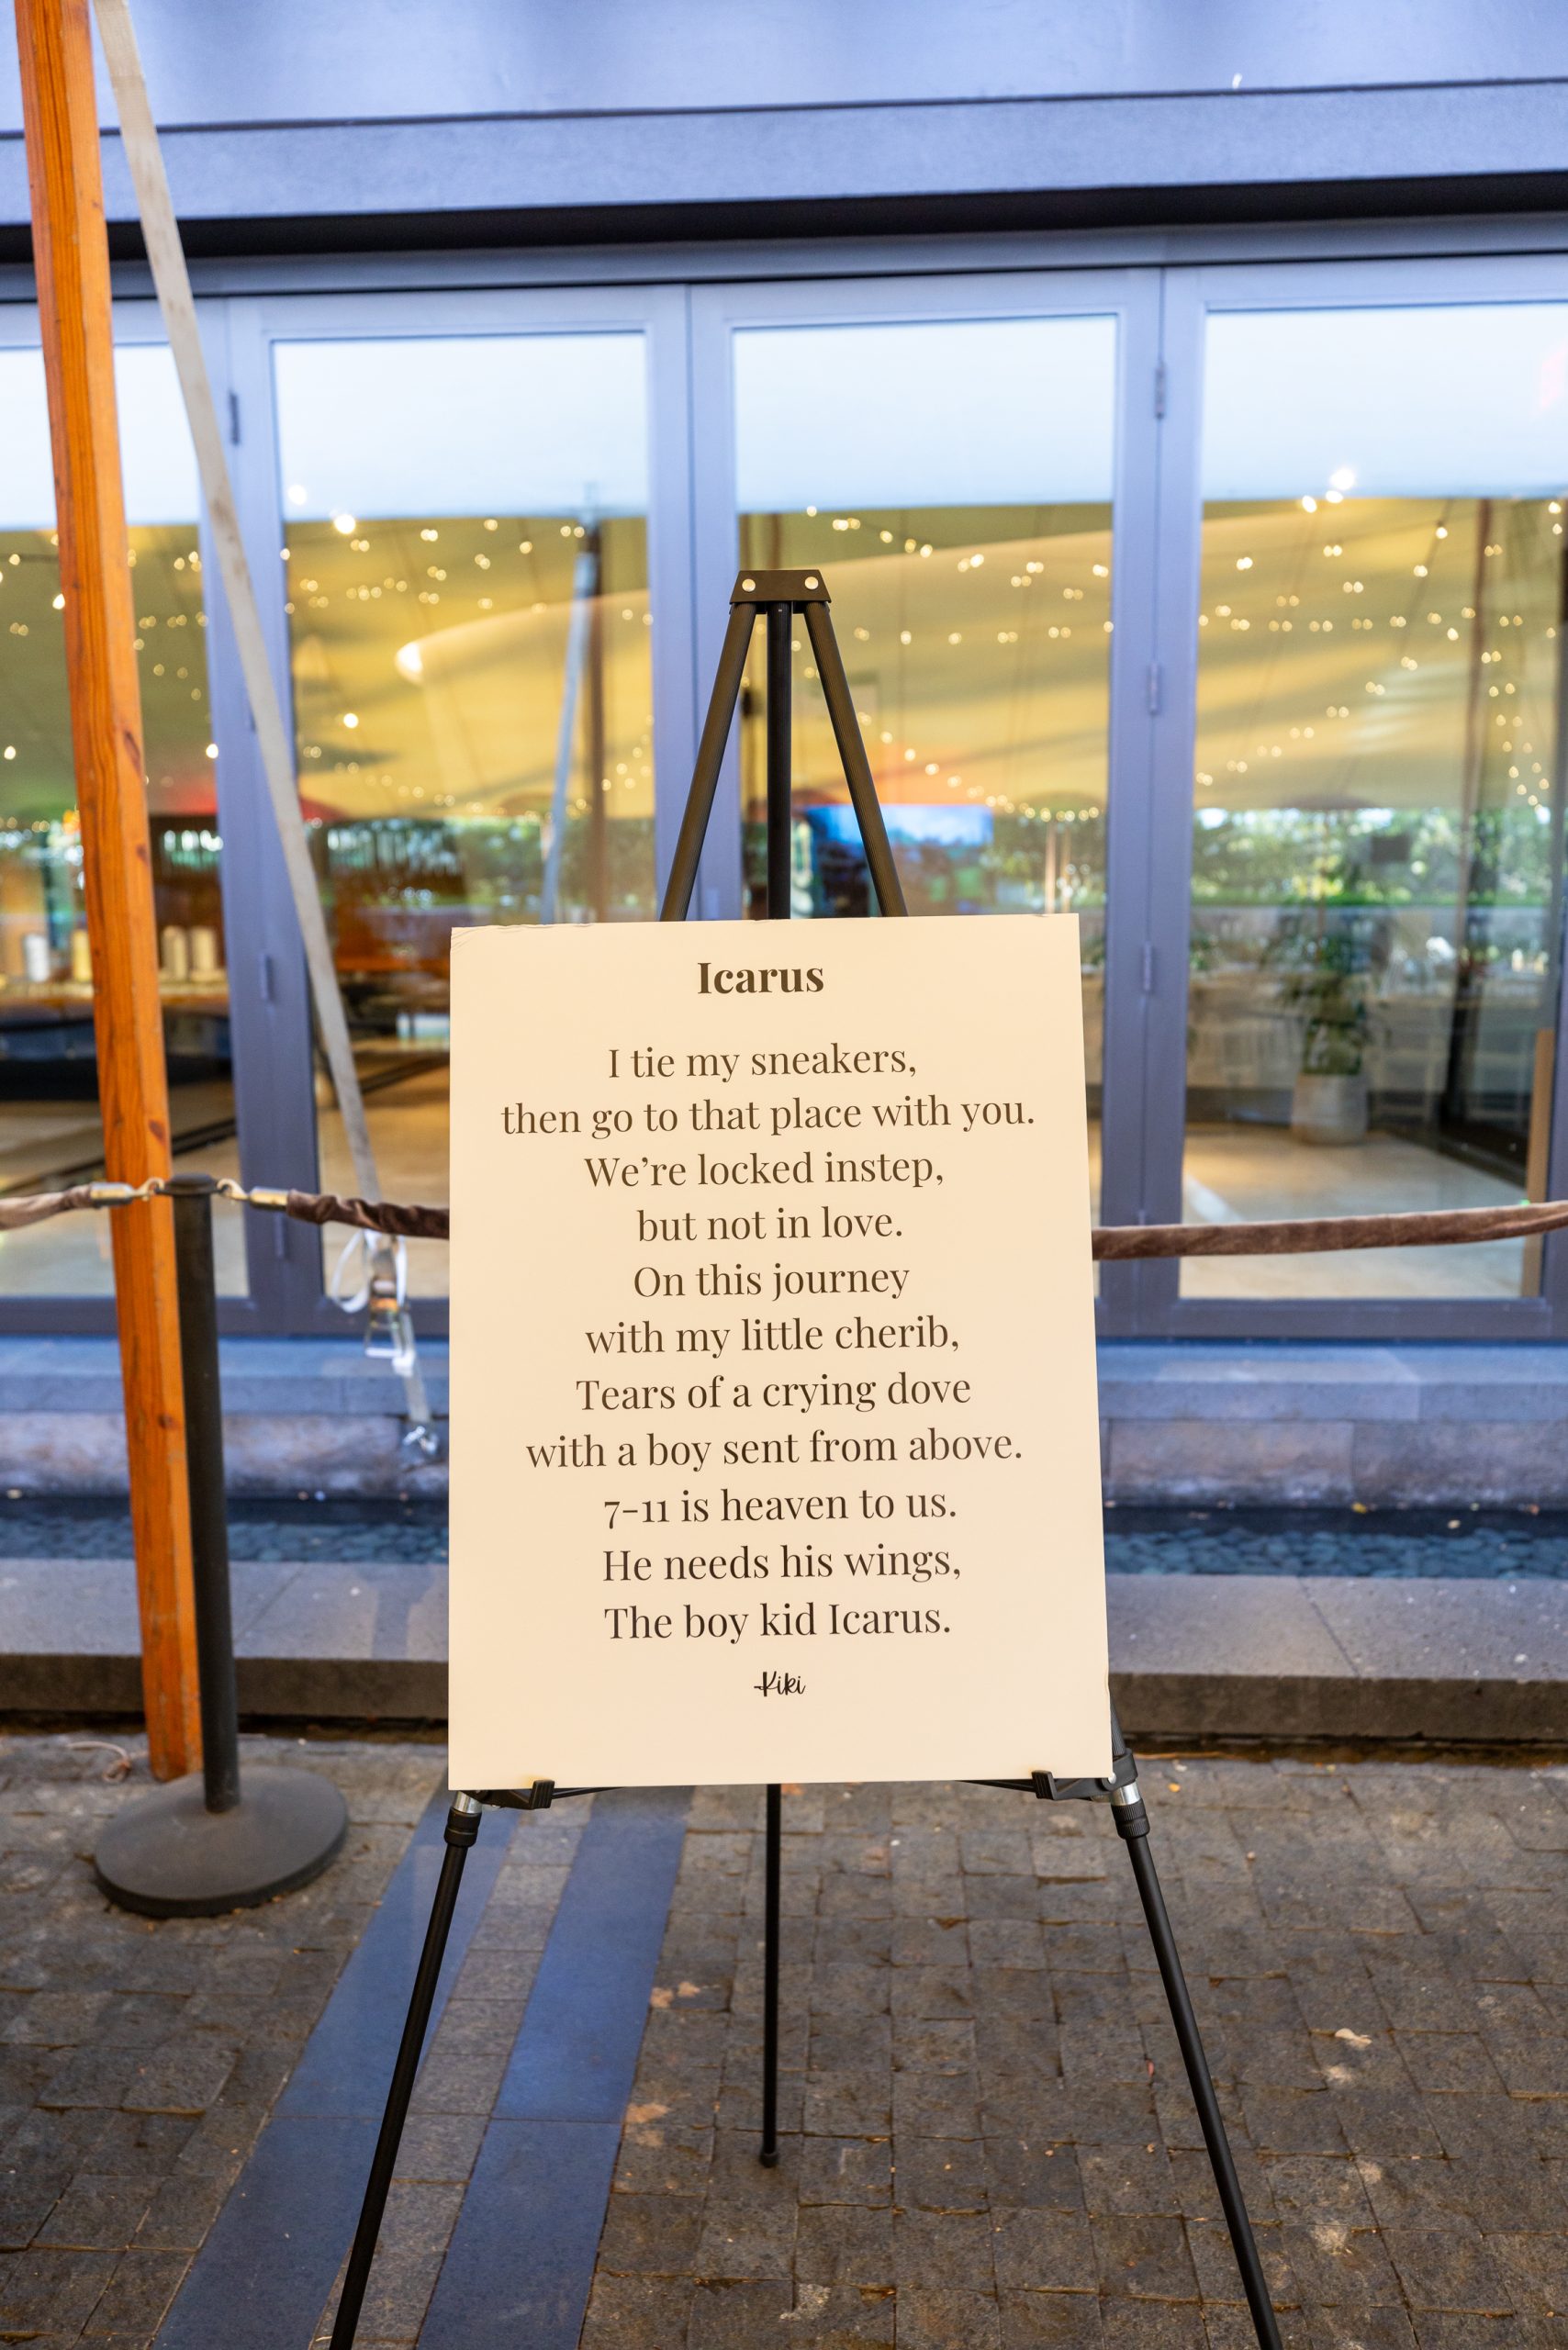 Icarus
I tie my sneakers,
then go to that place with you.
We're locked instep,
but not in love.
On this journey
with my little cherib,
Tears of a crying dove
with a boy sent from above.
7-11 is heaven to us.
He needs his wings,
The boy kid Icarus.
-Kiki